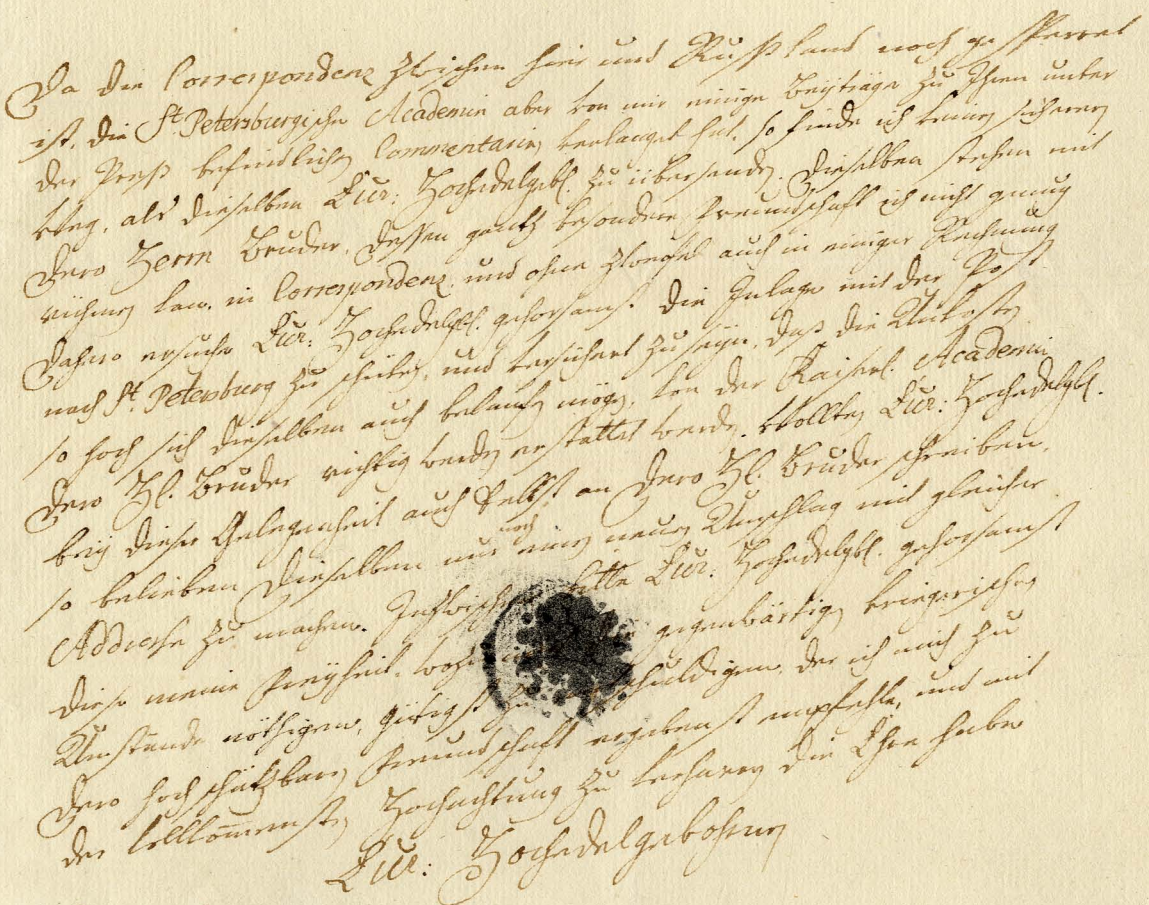 Da die Correspondenz zwischen hier und Rußland noch gesperret
ist, die St. Petersburgische Academie aber von mir einige Beyträge zu Ihren unter
der Preß befindlichen Commentarien verlanget hat, so finde ich keinen sicherern
Weg, als dieselben Eur: Hochedelgeb. zu übersenden. Dieselben stehen mit
Dero Herrn Bruder, dessen gantz besondere Freundschafft ich nicht genug
rühmen kan, in Correspondenz, und ohne Zweifel auch in einiger Rechnung
Dahero ersuche Eur: Hochedelgeb. gehorsamst. die Inlage mit der Post
nach St. Petersburg zu schicken, und versichert zu seyn, daß die Unkosten
so hoch sich dieselben auch belaufen mögen, von der Kaiserl. Academie
Dero H. Bruder richtig werden erstattet werden. Wollten Eur: Hochedelgeb.
bey dieser Gelegenheit auch selbst an Dero H. Bruder schreiben,
so belieben Dieselben nur noch einen neuen Umschlag mit gleicher
Addresse zu machen. Inzwischen bitte Eur: Hochedelgeb. gehorsamst
diese meine Freyheit, wozu gegenwärtigen kriegerischen
Umstände nöthigen, gütigst zu entschuldigen, der ich mich zu
Dero hochschätzbaren Freundschafft ergebenst empfehle, und mit
der vollkommensten Hochachtung zu verharren die Ehre habe
Eur: Hochedelgebohrnen